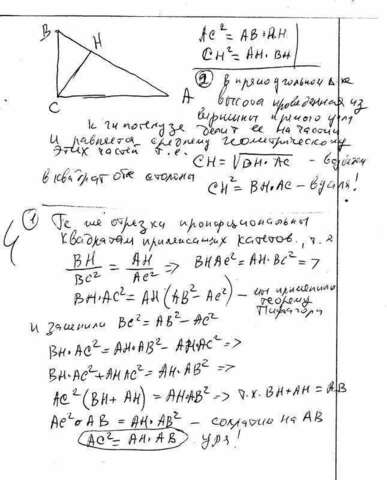 B
H
C
A
AC² = AB · AH
CH² = AH · BH
② В прямоугольном
высота проведенная из
вершины прямого угла
к гипотенузе делит её на части
и равняется среднему геометрическому
этих частей т. е.
CH = √BH · AC
в квадрат обе стороны
CH² = BH · AC
① Те же отрезки пропорциональны
квадратам прилежащих катетов, т. е.
BH/BC² = AH/AC² => BHAC² = AH · BC² =>
BH · AC² = AH (AB² - AC²) - мы применили
теорему
Пифагора
и заменили BC² = AB² - AC²
BH · AC² = AH · AB² - AHAC² =>
BH · AC² + AHAC² = AH · AB² =>
AC² (BH + AH) = AH · AB² => т.к. BH + AH = AB
AC² · AB = AH · AB² - сократим на AB
AC² = AH · AB ура!